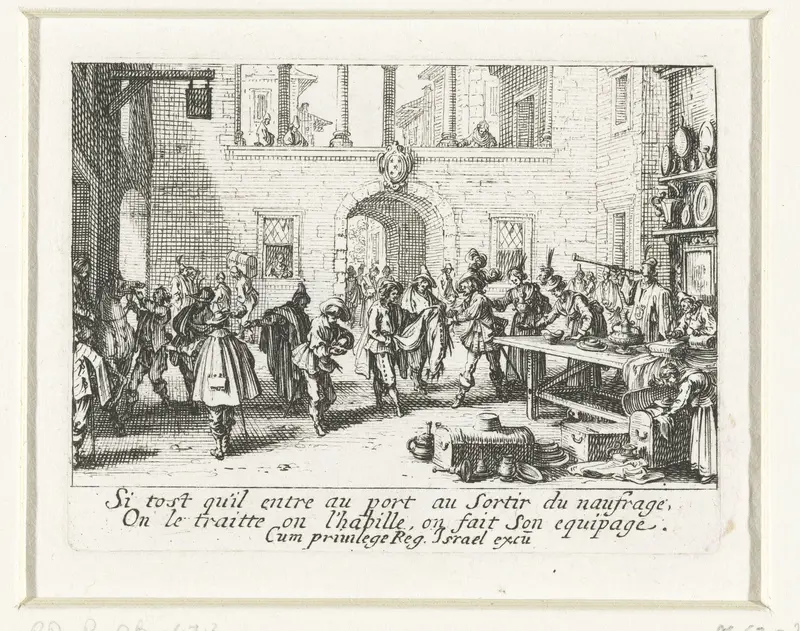 Si tost qu'il entre au port au Sortir du naufrage,
On le traitte on l'habille, on fait Son equipage.
Cum priuilege Reg. Israel excū